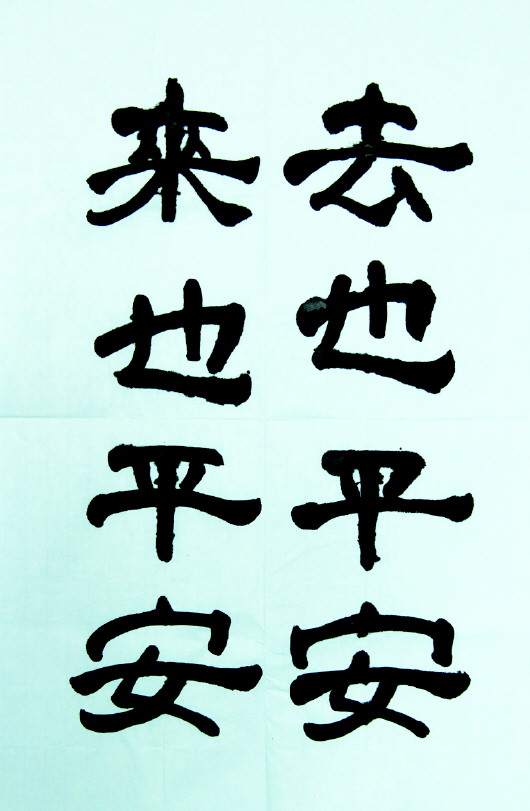 去也平安
來也平安